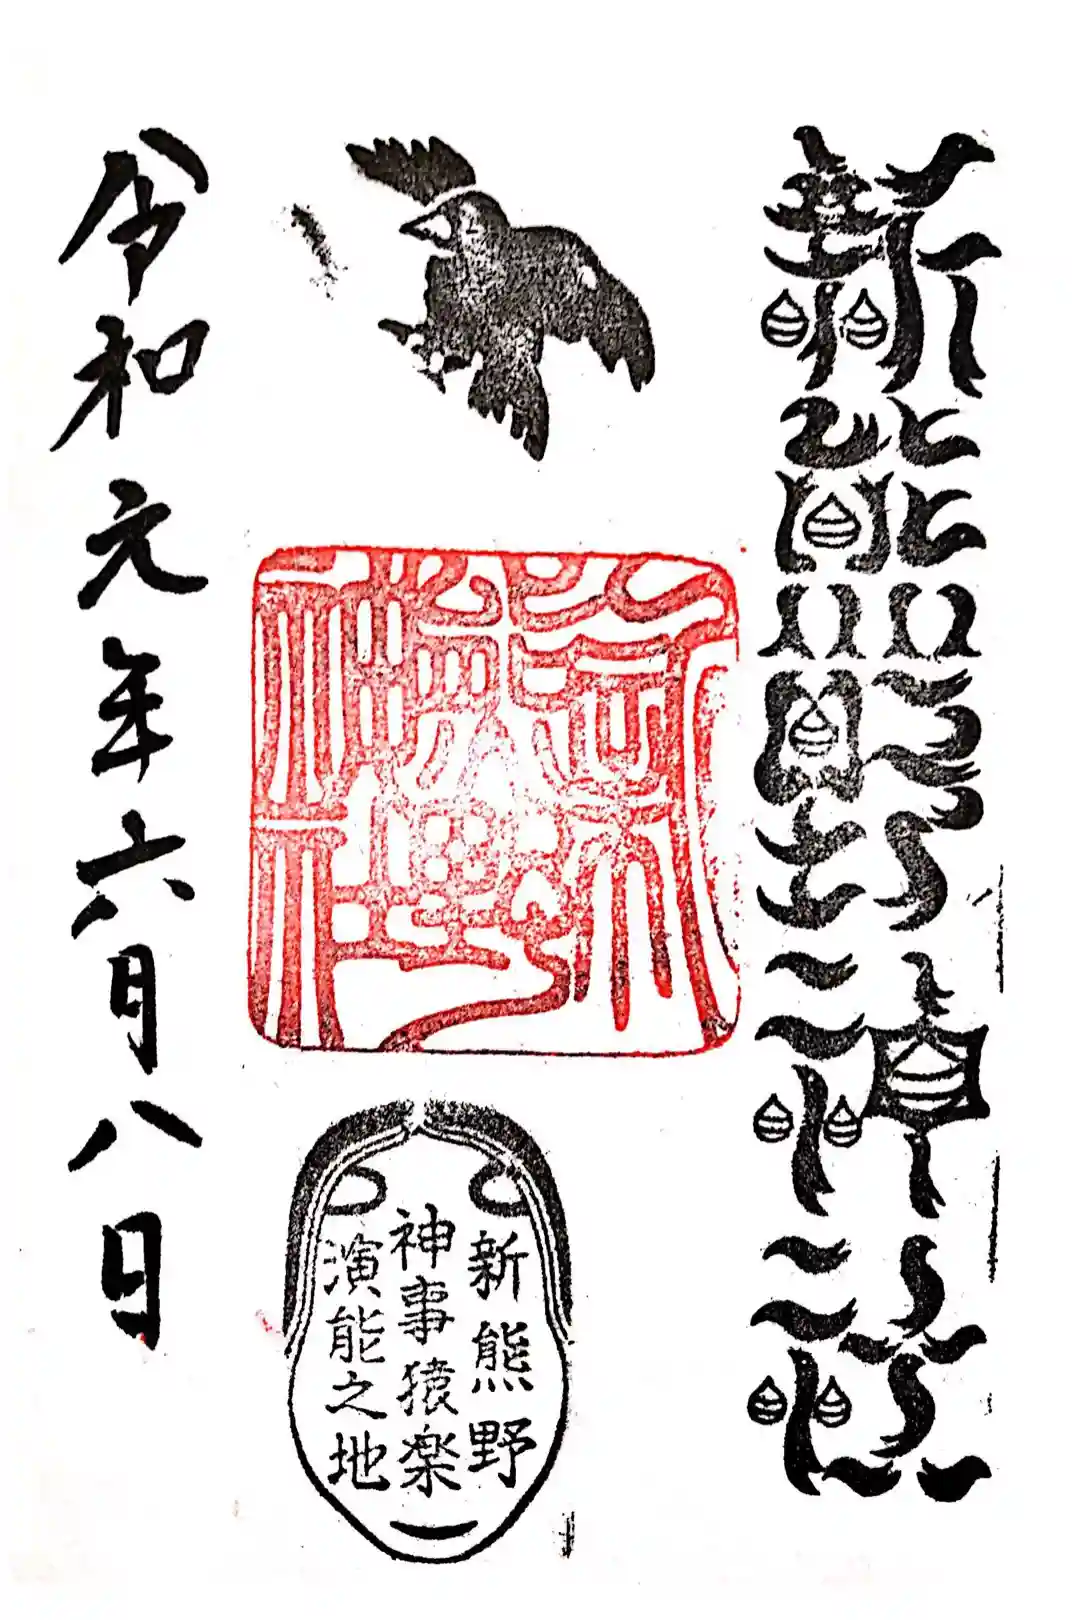 新熊野神社
新熊野
神事猿楽
演能之地
令和元年六月八日